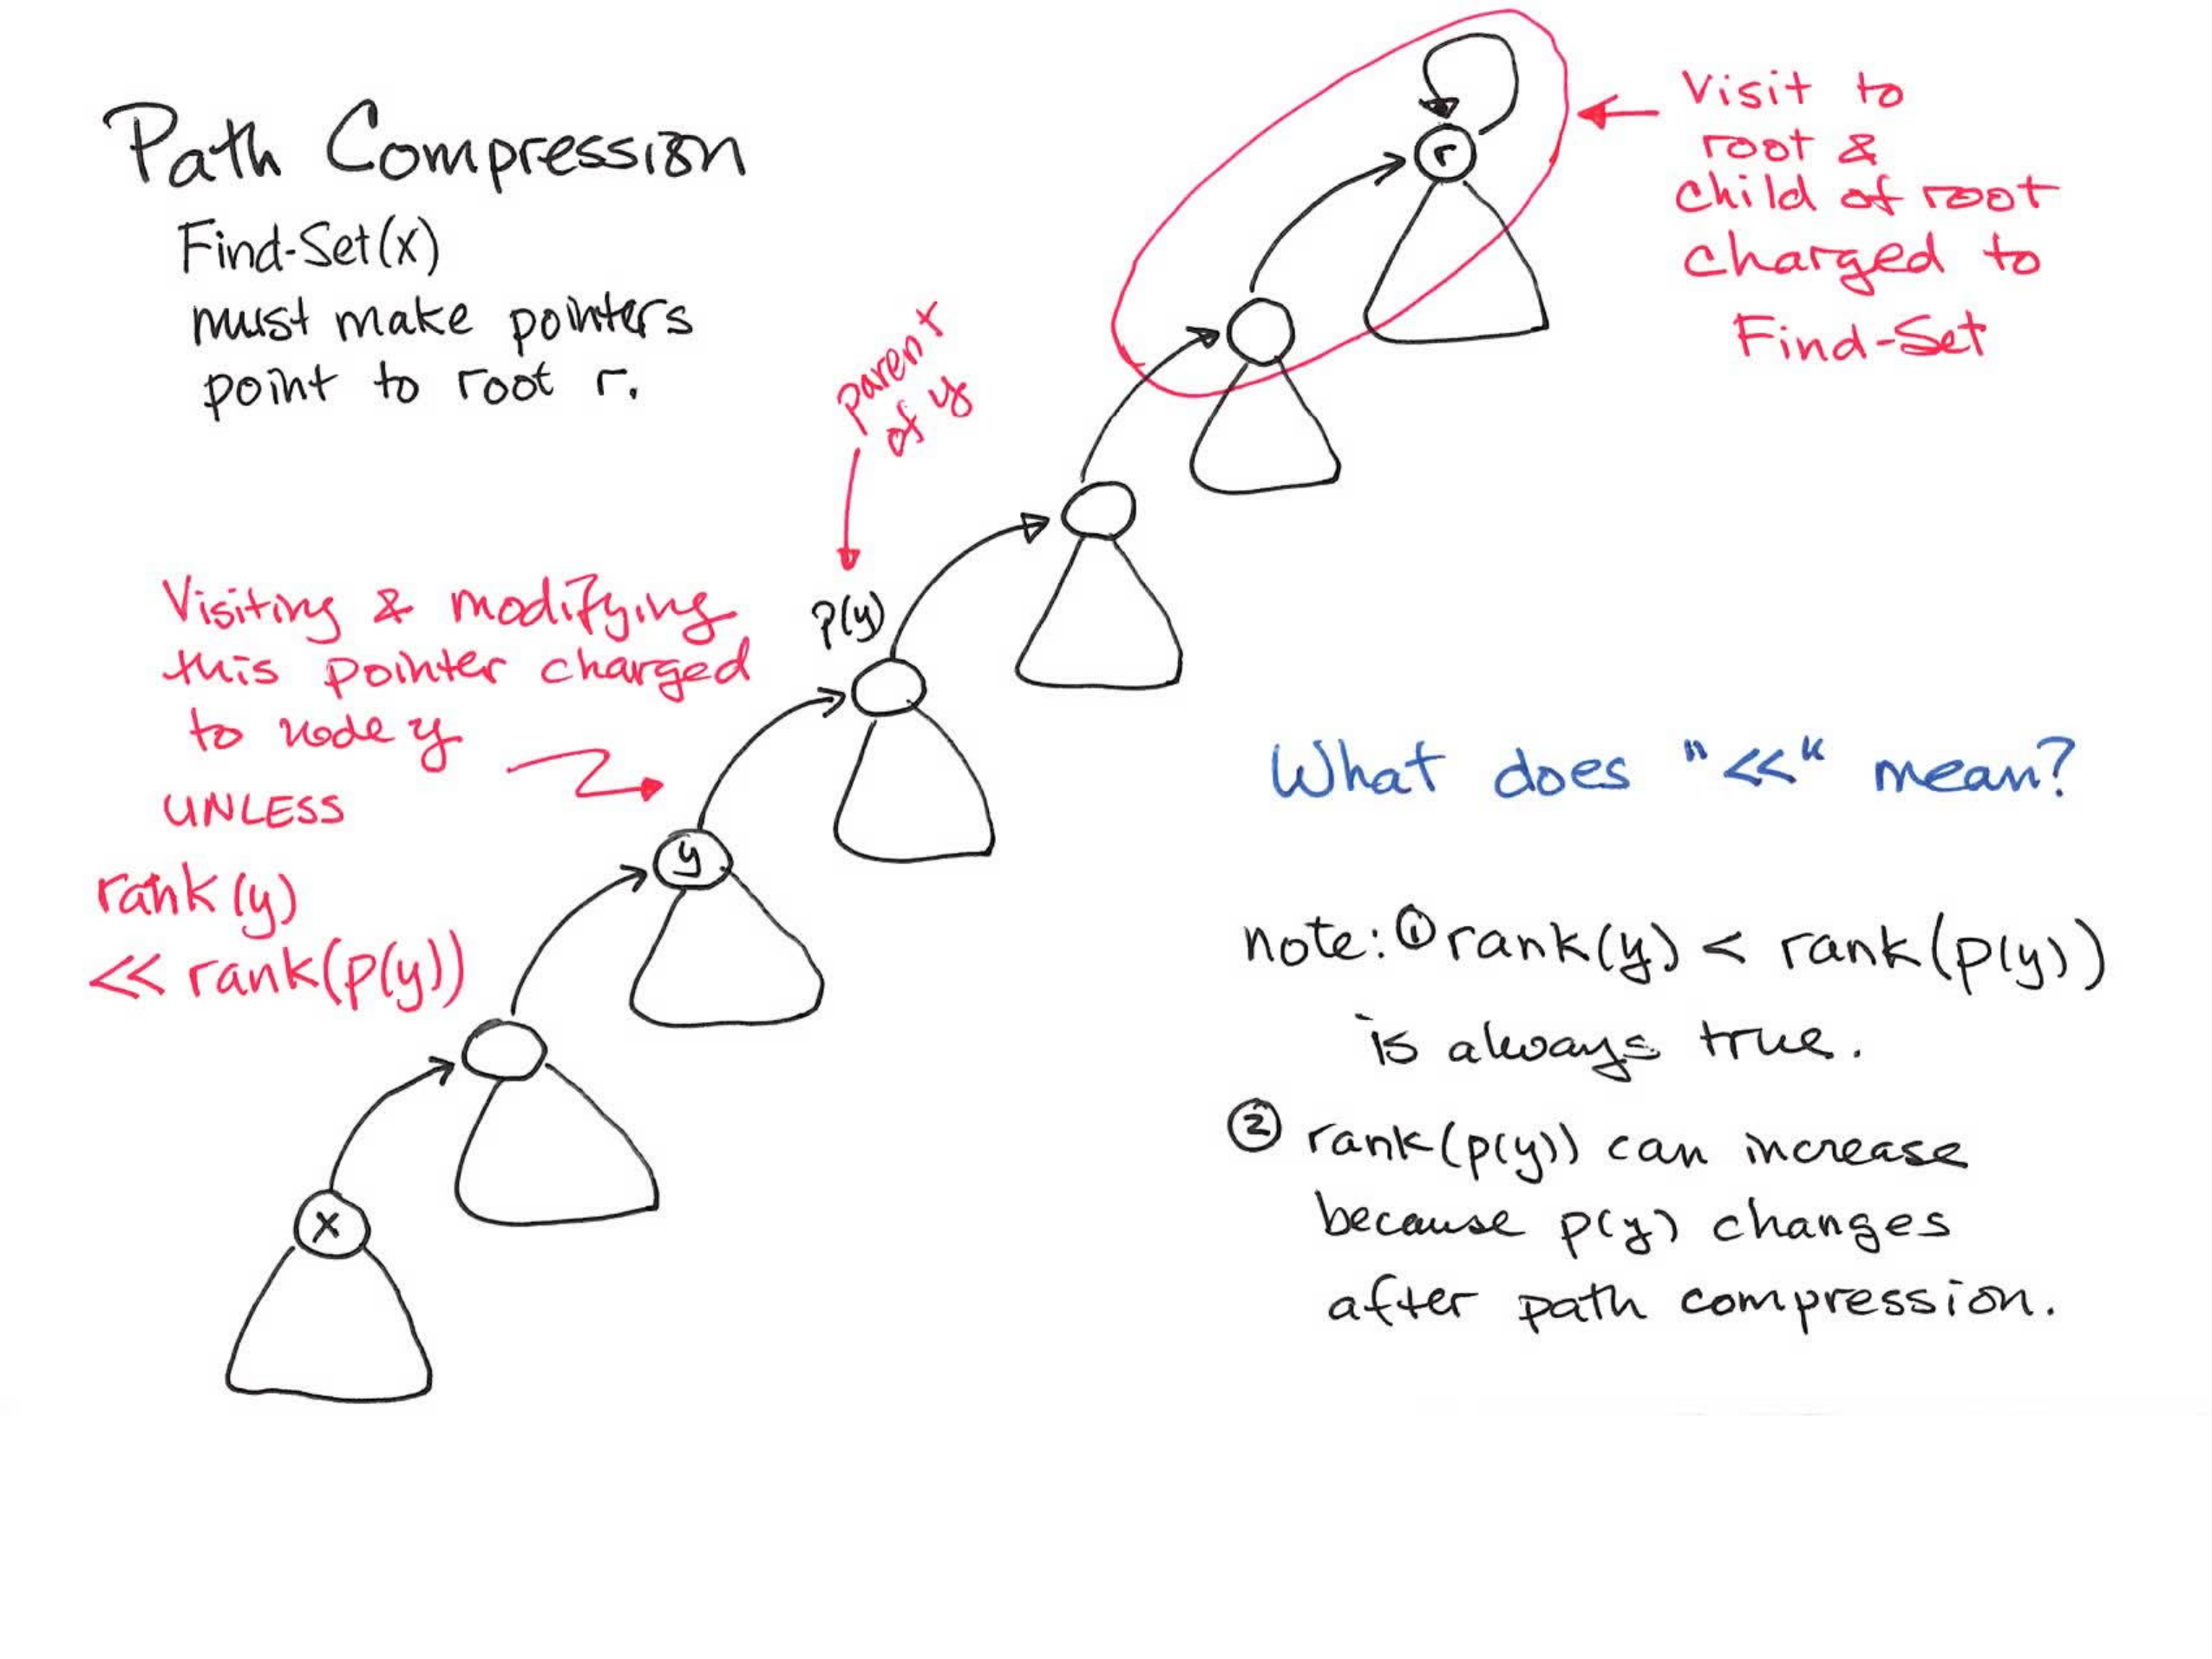 Path Compression
Find-Set(x)
must make pointers
point to root r.
Visit to
root &
child of root
charged to
Find-Set
r
parent
of y
p(y)
Visiting & modifying
this pointer charged
to node y
UNLESS
rank(y)
<< rank(p(y))
y
x
What does "<<" mean?
note: ① rank(y) < rank(p(y))
is always true.
② rank(p(y)) can increase
because p(y) changes
after path compression.